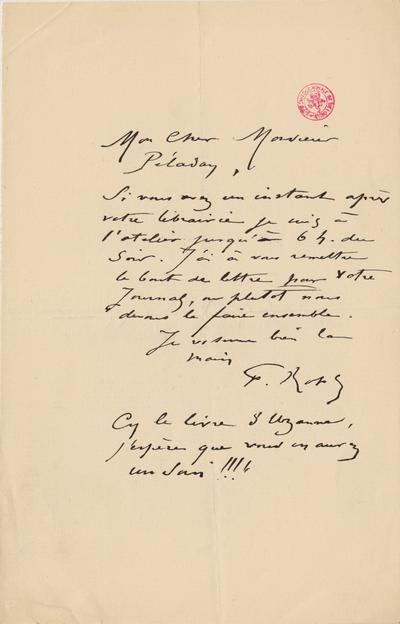 Mon Cher Monsieur
Péladan,
Si vous avez un instant après
votre librairie je suis à
l'atelier jusqu'à 6 h. du
soir. J'ai à vous remettre
le bout de lettre pour votre
Journal, ou plutôt nous
devons le faire ensemble.
Je vous serre bien la
main
F. Rops
Cy le livre d'Uzanne,
j'espère que vous en aurez
un soin !!!